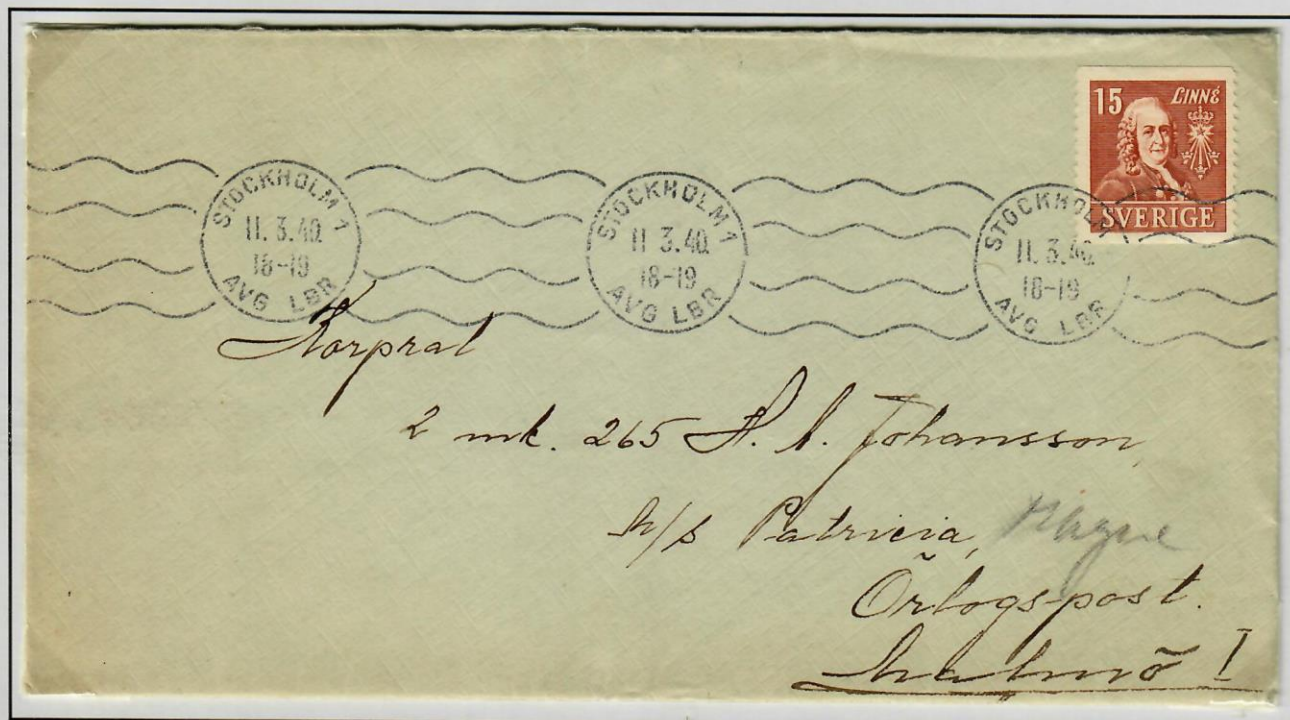 15 LINNÉ
SVERIGE
STOCKHOLM 1
11.3.40.
18-19
AVG LBR
STOCKHOLM 1
11 3.40.
18-19
AVG LBR
STOCKHOLM
11.3.40.
18-19
AVG LBR
Korpral
2 mk. 265 Johansson,
Patricia,
Örlogspost.
Malmö I